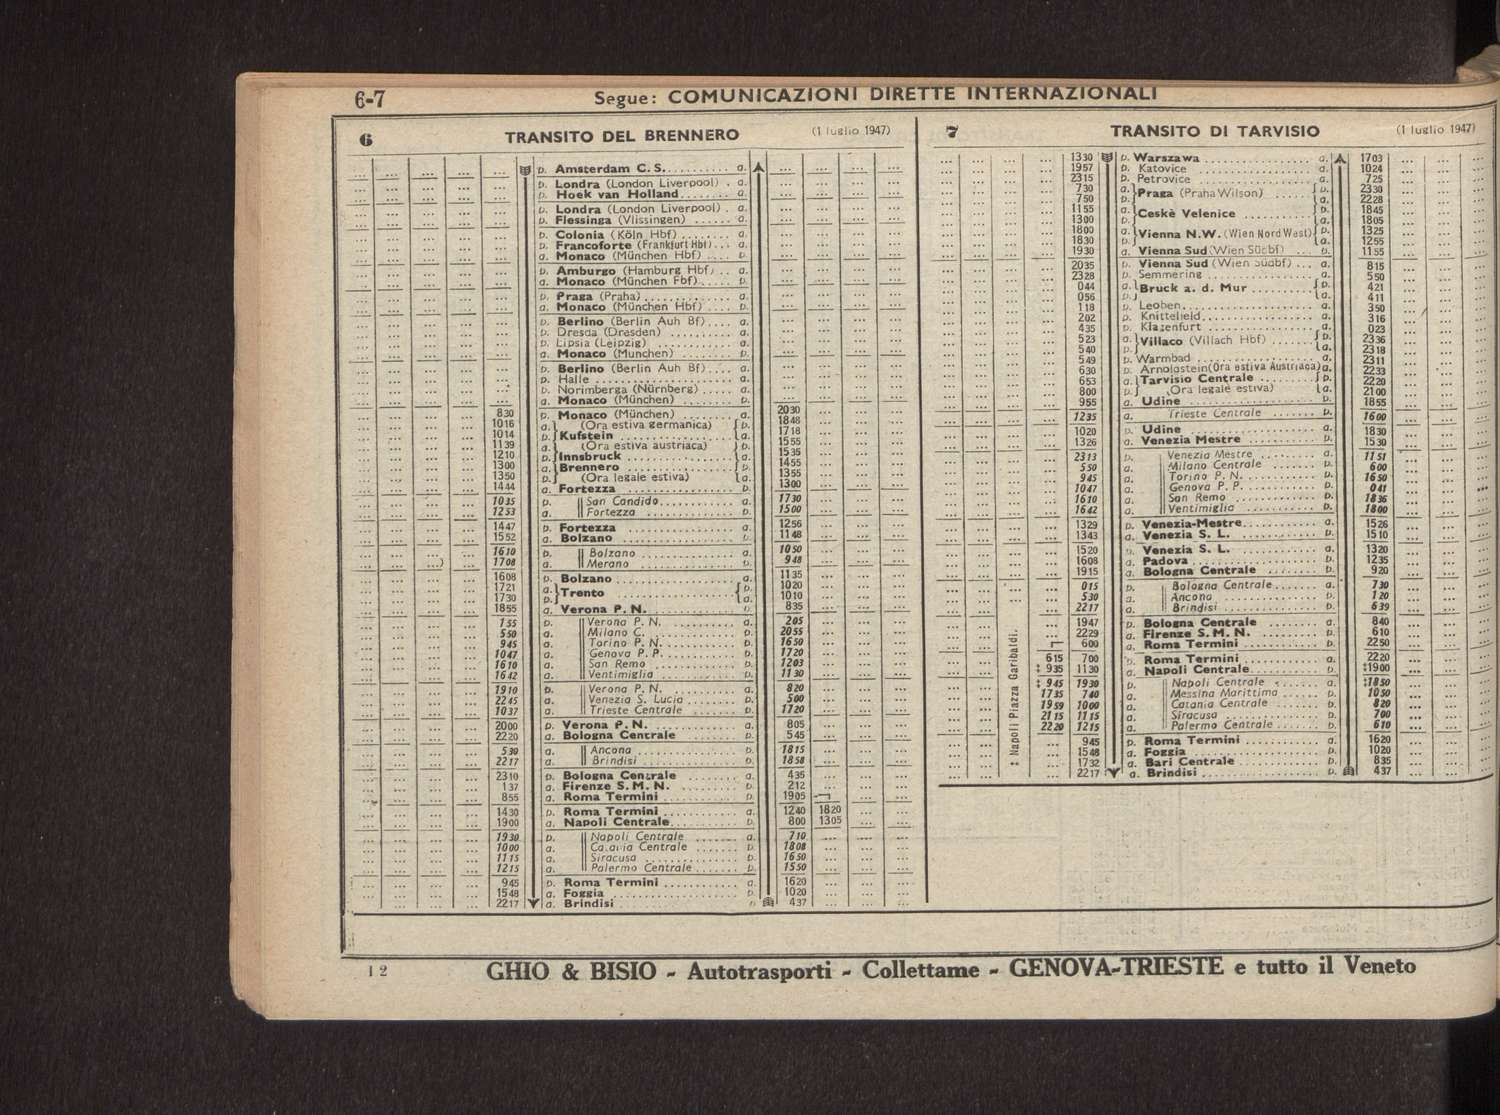 6-7 Segue: COMUNICAZIONI DIRETTE INTERNAZIONALI
6 TRANSITO DEL BRENNERO (1 luglio 1947)
p. Amsterdam C. S. a.
p. Londra (London Liverpool) a.
p. Hoek van Holland a.
p. Londra (London Liverpool) a.
p. Flessinga (Vlissingen) a.
p. Colonia (Köln Hbf) a.
p. Francoforte (Frankfurt Hbf) a.
a. Monaco (München Hbf) p.
p. Amburgo (Hamburg Hbf) a.
a. Monaco (München Hbf) p.
p. Praga (Praha) a.
a. Monaco (München Hbf) p.
p. Berlino (Berlin Auh Bf) a.
p. Dresda (Dresden) a.
p. Lipsia (Leipzig) a.
a. Monaco (München) p.
p. Berlino (Berlin Auh Bf) a.
p. Halle a.
p. Norimberga (Nürnberg) a.
a. Monaco (München) p.
830 p. Monaco (München) a. 2030
1016 a. (Ora estiva germanica) p. 1848
1014 p. Kufstein a. 1718
1139 a. (Ora estiva austriaca) p. 1555
1210 p. Innsbruck a. 1535
1300 a. Brennero p. 1455
1350 p. (Ora legale estiva) a. 1355
1444 a. Fortezza p. 1300
1035 p. San Candido a. 1730
1253 a. Fortezza p. 1500
1447 p. Fortezza a. 1256
1552 a. Bolzano p. 1148
1610 p. Bolzano a. 1050
1708 a. Merano p. 948
1608 p. Bolzano a. 1135
1721 a. Trento p. 1020
1730 p. a. 1010
1855 a. Verona P. N. p. 835
755 p. Verona P. N. a. 205
550 a. Milano C. p. 2055
945 a. Torino P. N. p. 1650
1047 a. Genova P. P. p. 1720
1610 a. San Remo p. 1203
1642 a. Ventimiglia p. 1130
1910 p. Verona P. N. a. 820
2245 a. Venezia S. Lucia p. 500
1037 a. Trieste Centrale p. 1720
2000 p. Verona P. N. a. 805
2220 a. Bologna Centrale p. 545
530 a. Ancona p. 1815
2217 a. Brindisi p. 1858
2310 p. Bologna Centrale a. 435
137 a. Firenze S. M. N. p. 212
855 a. Roma Termini p. 1905
1430 p. Roma Termini a. 1240 1820
1900 a. Napoli Centrale p. 800 1305
1930 p. Napoli Centrale a. 710
1000 a. Catania Centrale p. 1808
1115 a. Siracusa p. 1650
1215 a. Palermo Centrale p. 1550
945 p. Roma Termini a. 1620
1548 a. Foggia p. 1020
2217 a. Brindisi p. 437
7 TRANSITO DI TARVISIO (1 luglio 1947)
1330 p. Warszawa a. 1703
1957 p. Katovice a. 1024
2315 p. Petrovice a. 725
730 a. Praga (Praha Wilson) p. 2330
750 p. a. 2228
1155 a. Ceskè Velenice p. 1845
1300 p. a. 1805
1800 a. Vienna N.W. (Wien Nord West) p. 1325
1830 p. a. 1255
1930 a. Vienna Sud (Wien Südbf) p. 1155
2035 p. Vienna Sud (Wien Südbf) a. 815
2328 p. Semmering a. 550
044 a. Bruck a. d. Mur p. 421
056 p. a. 411
118 p. Leoben a. 350
202 p. Knittelfeld a. 316
435 p. Klagenfurt a. 023
523 a. Villaco (Villach Hbf) p. 2336
540 p. a. 2318
549 p. Warmbad a. 2311
630 p. Arnoldstein (Ora estiva Austriaca) a. 2233
653 a. Tarvisio Centrale p. 2220
800 p. (Ora legale estiva) a. 2100
955 a. Udine p. 1855
1235 a. Trieste Centrale p. 1600
1020 p. Udine a. 1830
1326 a. Venezia Mestre p. 1530
2313 p. Venezia Mestre a. 1151
550 a. Milano Centrale p. 600
945 a. Torino P. N. p. 1650
1047 a. Genova P. P. p. 041
1610 a. San Remo p. 1836
1642 a. Ventimiglia p. 1800
1329 p. Venezia-Mestre a. 1526
1343 a. Venezia S. L. p. 1510
1520 p. Venezia S. L. a. 1320
1608 a. Padova p. 1235
1915 a. Bologna Centrale p. 920
015 p. Bologna Centrale a. 730
530 a. Ancona p. 120
2217 a. Brindisi p. 639
1947 p. Bologna Centrale a. 840
2229 a. Firenze S. M. N. p. 610
600 a. Roma Termini p. 2250
615 700 p. Roma Termini a. 2220
‡ 935 1130 a. Napoli Centrale p. ‡1900
‡ 945 1930 p. Napoli Centrale a. ‡1850
1735 740 a. Messina Marittima p. 1050
1959 1000 a. Catania Centrale p. 820
2115 1115 a. Siracusa p. 700
2220 1215 a. Palermo Centrale p. 610
945 p. Roma Termini a. 1620
1548 a. Foggia p. 1020
1732 a. Bari Centrale p. 835
2217 a. Brindisi p. 437
‡ Napoli Piazza Garibaldi.
12 GHIO & BISIO - Autotrasporti - Collettame - GENOVA-TRIESTE e tutto il Veneto